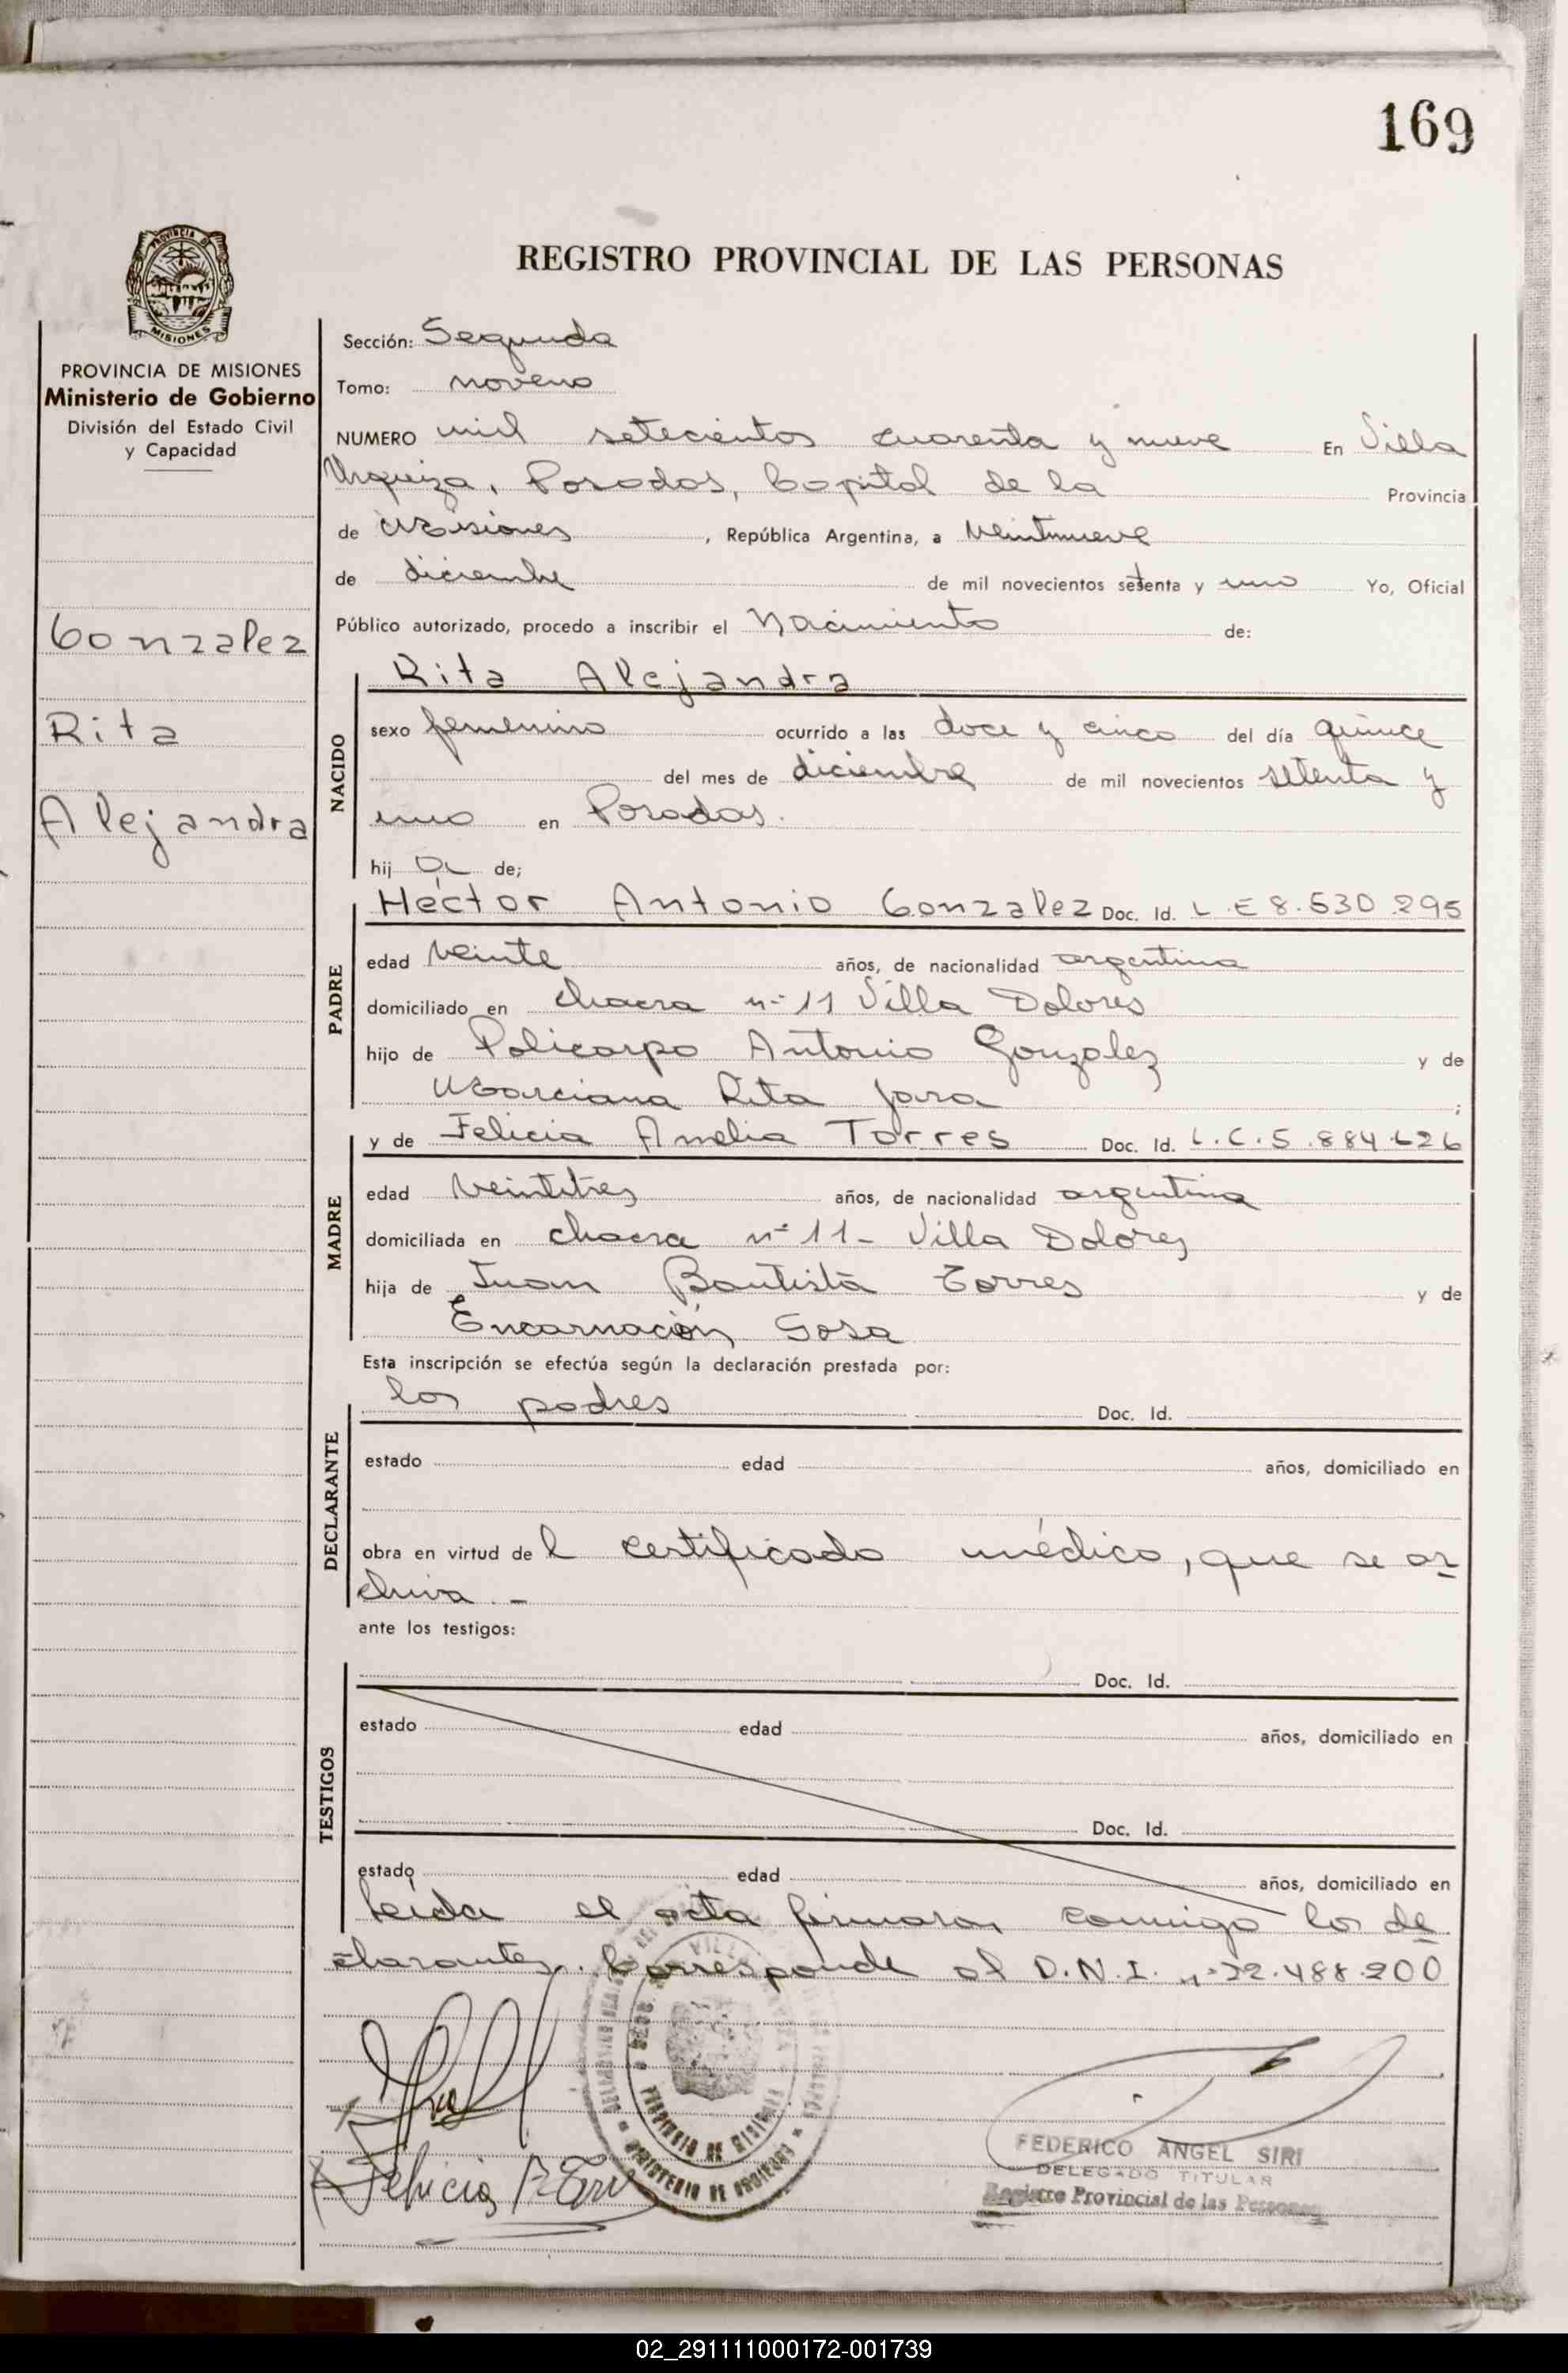 169
PROVINCIA DE
MISIONES
REGISTRO PROVINCIAL DE LAS PERSONAS
PROVINCIA DE MISIONES
Ministerio de Gobierno
División del Estado Civil
y Capacidad
Gonzalez
Rita
Alejandra
Sección: Segunda
Tomo: noveno
NUMERO mil setecientos cuarenta y nueve En Villa
Urquiza, Posadas, Capital de la Provincia
de Misiones, República Argentina, a veintinueve
de diciembre de mil novecientos setenta y uno Yo, Oficial
Público autorizado, procedo a inscribir el Nacimiento de:
NACIDO
Rita Alejandra
sexo femenino ocurrido a las doce y cinco del día quince
del mes de diciembre de mil novecientos setenta y
uno en Posadas.
hij a de;
PADRE
Héctor Antonio Gonzalez Doc. Id. L.E 8.630.295
edad veinte años, de nacionalidad argentina
domiciliado en chacra nº 11 Villa Dolores
hijo de Policarpo Antonio Gonzalez y de
Marciana Rita Jara ;
MADRE
y de Felicia Amelia Torres Doc. Id. L.C. 5.884.626
edad veintitres años, de nacionalidad argentina
domiciliada en chacra nº 11- Villa Dolores
hija de Juan Bautista Torres y de
Encarnación Sosa
Esta inscripción se efectúa según la declaración prestada por:
DECLARANTE
los padres Doc. Id.
estado edad años, domiciliado en
obra en virtud de l certificado médico, que se ar
chiva.-
ante los testigos:
TESTIGOS
Doc. Id.
estado edad años, domiciliado en
Doc. Id.
estado edad años, domiciliado en
Leída el acta firmaron conmigo los de
clarantes. Corresponde al D.N.I. nº 22.488.200
PROVINCIA DE MISIONES
MINISTERIO DE GOBIERNO
Felicia A. Torres
FEDERICO ANGEL SIRI
DELEGADO TITULAR
Registro Provincial de las Personas
02_291111000172-001739